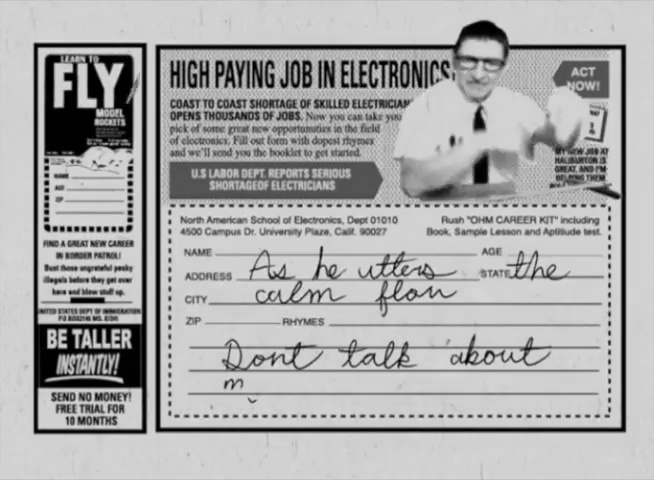 LEARN TO
FLY
MODEL
ROCKETS
NAME
AGE
ZIP
FIND A GREAT NEW CAREER
IN BORDER PATROL!
Bust those ungrateful pesky
illegals before they get over
here and blow stuff up.
UNITED STATES DEPT OF IMMIGRATION
BE TALLER
INSTANTLY!
SEND NO MONEY!
FREE TRIAL FOR
10 MONTHS
HIGH PAYING JOB IN ELECTRONICS
COAST TO COAST SHORTAGE OF SKILLED ELECTRICIAN
OPENS THOUSANDS OF JOBS. Now you can take you
pick of some great new opportunities in the field
of electronics. Fill out form with dopest rhymes
and we'll send you the booklet to get started.
U.S LABOR DEPT. REPORTS SERIOUS
SHORTAGEOF ELECTRICIANS
ACT
NOW!
MY NEW JOB AT
HALIBURTON IS
GREAT, AND I'M
HELPING THEM
North American School of Electronics, Dept 01010
4500 Campus Dr. University Plaze, Calif. 90027
Rush "OHM CAREER KIT" including
Book, Sample Lesson and Aptitiude test.
NAME AGE
ADDRESS As he utters STATE the
CITY calm flow
ZIP RHYMES
Dont talk about
m